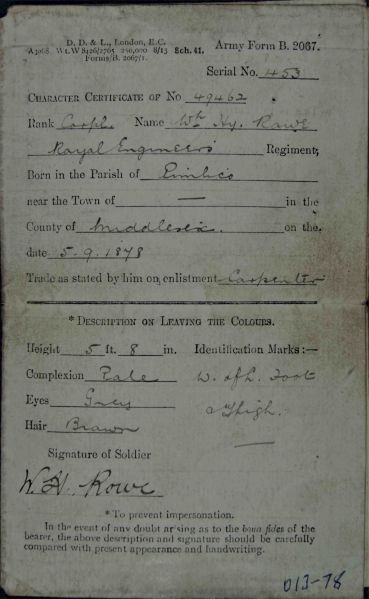 D. D. & L., London, E.C.
A4068. Wt. W 8426/2765 250,000 8/13 Sch. 41. Army Form B. 2067.
Forms/B. 2067/1.
Serial No. 453
CHARACTER CERTIFICATE OF No 49462
Rank Corpl. Name Wm Hy. Rowe
Royal Engineers Regiment,
Born in the Parish of Pimlico
near the Town of — in the
County of Middlesex. on the
date 5.9.1878
Trade as stated by him on enlistment Carpenter
* DESCRIPTION ON LEAVING THE COLOURS.
Height 5 ft. 8 in. Identification Marks:—
Complexion Pale W. of h. Foot
Eyes Grey & Thigh.
Hair Brown —
Signature of Soldier
W. H. Rowe
* To prevent impersonation.
In the event of any doubt arising as to the bona fides of the
bearer, the above description and signature should be carefully
compared with present appearance and handwriting.
013-78